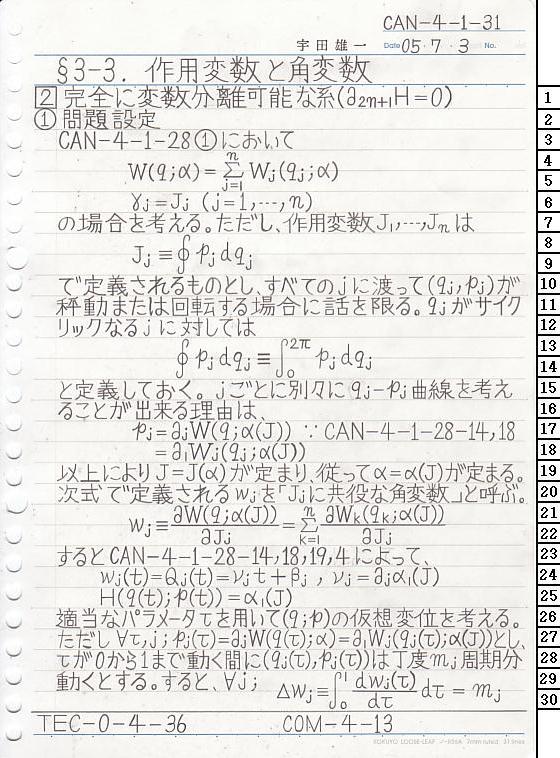 CAN-4-1-31
宇田雄一 Date 05・7・3 No.
§3-3. 作用変数と角変数
2 完全に変数分離可能な系(∂₂ₙ₊₁H=0)
① 問題設定
CAN-4-1-28①において
W(q;α)=Σⁿⱼ₌₁ Wⱼ(qⱼ;α)
γⱼ=Jⱼ (j=1,…,n)
の場合を考える。ただし、作用変数J₁,…,Jₙは
Jⱼ≡∮pⱼdqⱼ
で定義されるものとし、すべてのjに渡って(qⱼ,pⱼ)が
秤動または回転する場合に話を限る。qⱼがサイク
リックなるjに対しては
∮pⱼdqⱼ≡∫₀²π pⱼdqⱼ
と定義しておく。jごとに別々にqⱼ-pⱼ曲線を考え
ることが出来る理由は、
pⱼ=∂ⱼW(q;α(J)) ∵CAN-4-1-28-14,18
=∂₁Wⱼ(qⱼ;α(J))
以上によりJ=J(α)が定まり、従ってα=α(J)が定まる。
次式で定義されるwⱼを「Jⱼに共役な角変数」と呼ぶ。
wⱼ≡∂W(q;α(J))/∂Jⱼ=Σⁿₖ₌₁ ∂Wₖ(qₖ;α(J))/∂Jⱼ
するとCAN-4-1-28-14,18,19,4によって、
wⱼ(t)=Qⱼ(t)=νⱼt+βⱼ, νⱼ=∂ⱼα₁(J)
H(q(t);p(t))=α₁(J)
適当なパラメータτを用いて(q;p)の仮想変位を考える。
ただし∀τ,j;pⱼ(τ)=∂ⱼW(q(τ);α)=∂₁Wⱼ(qⱼ(τ);α(J))とし、
τが0から1まで動く間に(qⱼ(τ),pⱼ(τ))は丁度mⱼ周期分
動くとする。すると、∀j; Δwⱼ≡∫₀¹ dwⱼ(τ)/dτ dτ=mⱼ
TEC-0-4-36 COM-4-13
1
2
3
4
5
6
7
8
9
10
11
12
13
14
15
16
17
18
19
20
21
22
23
24
25
26
27
28
29
30